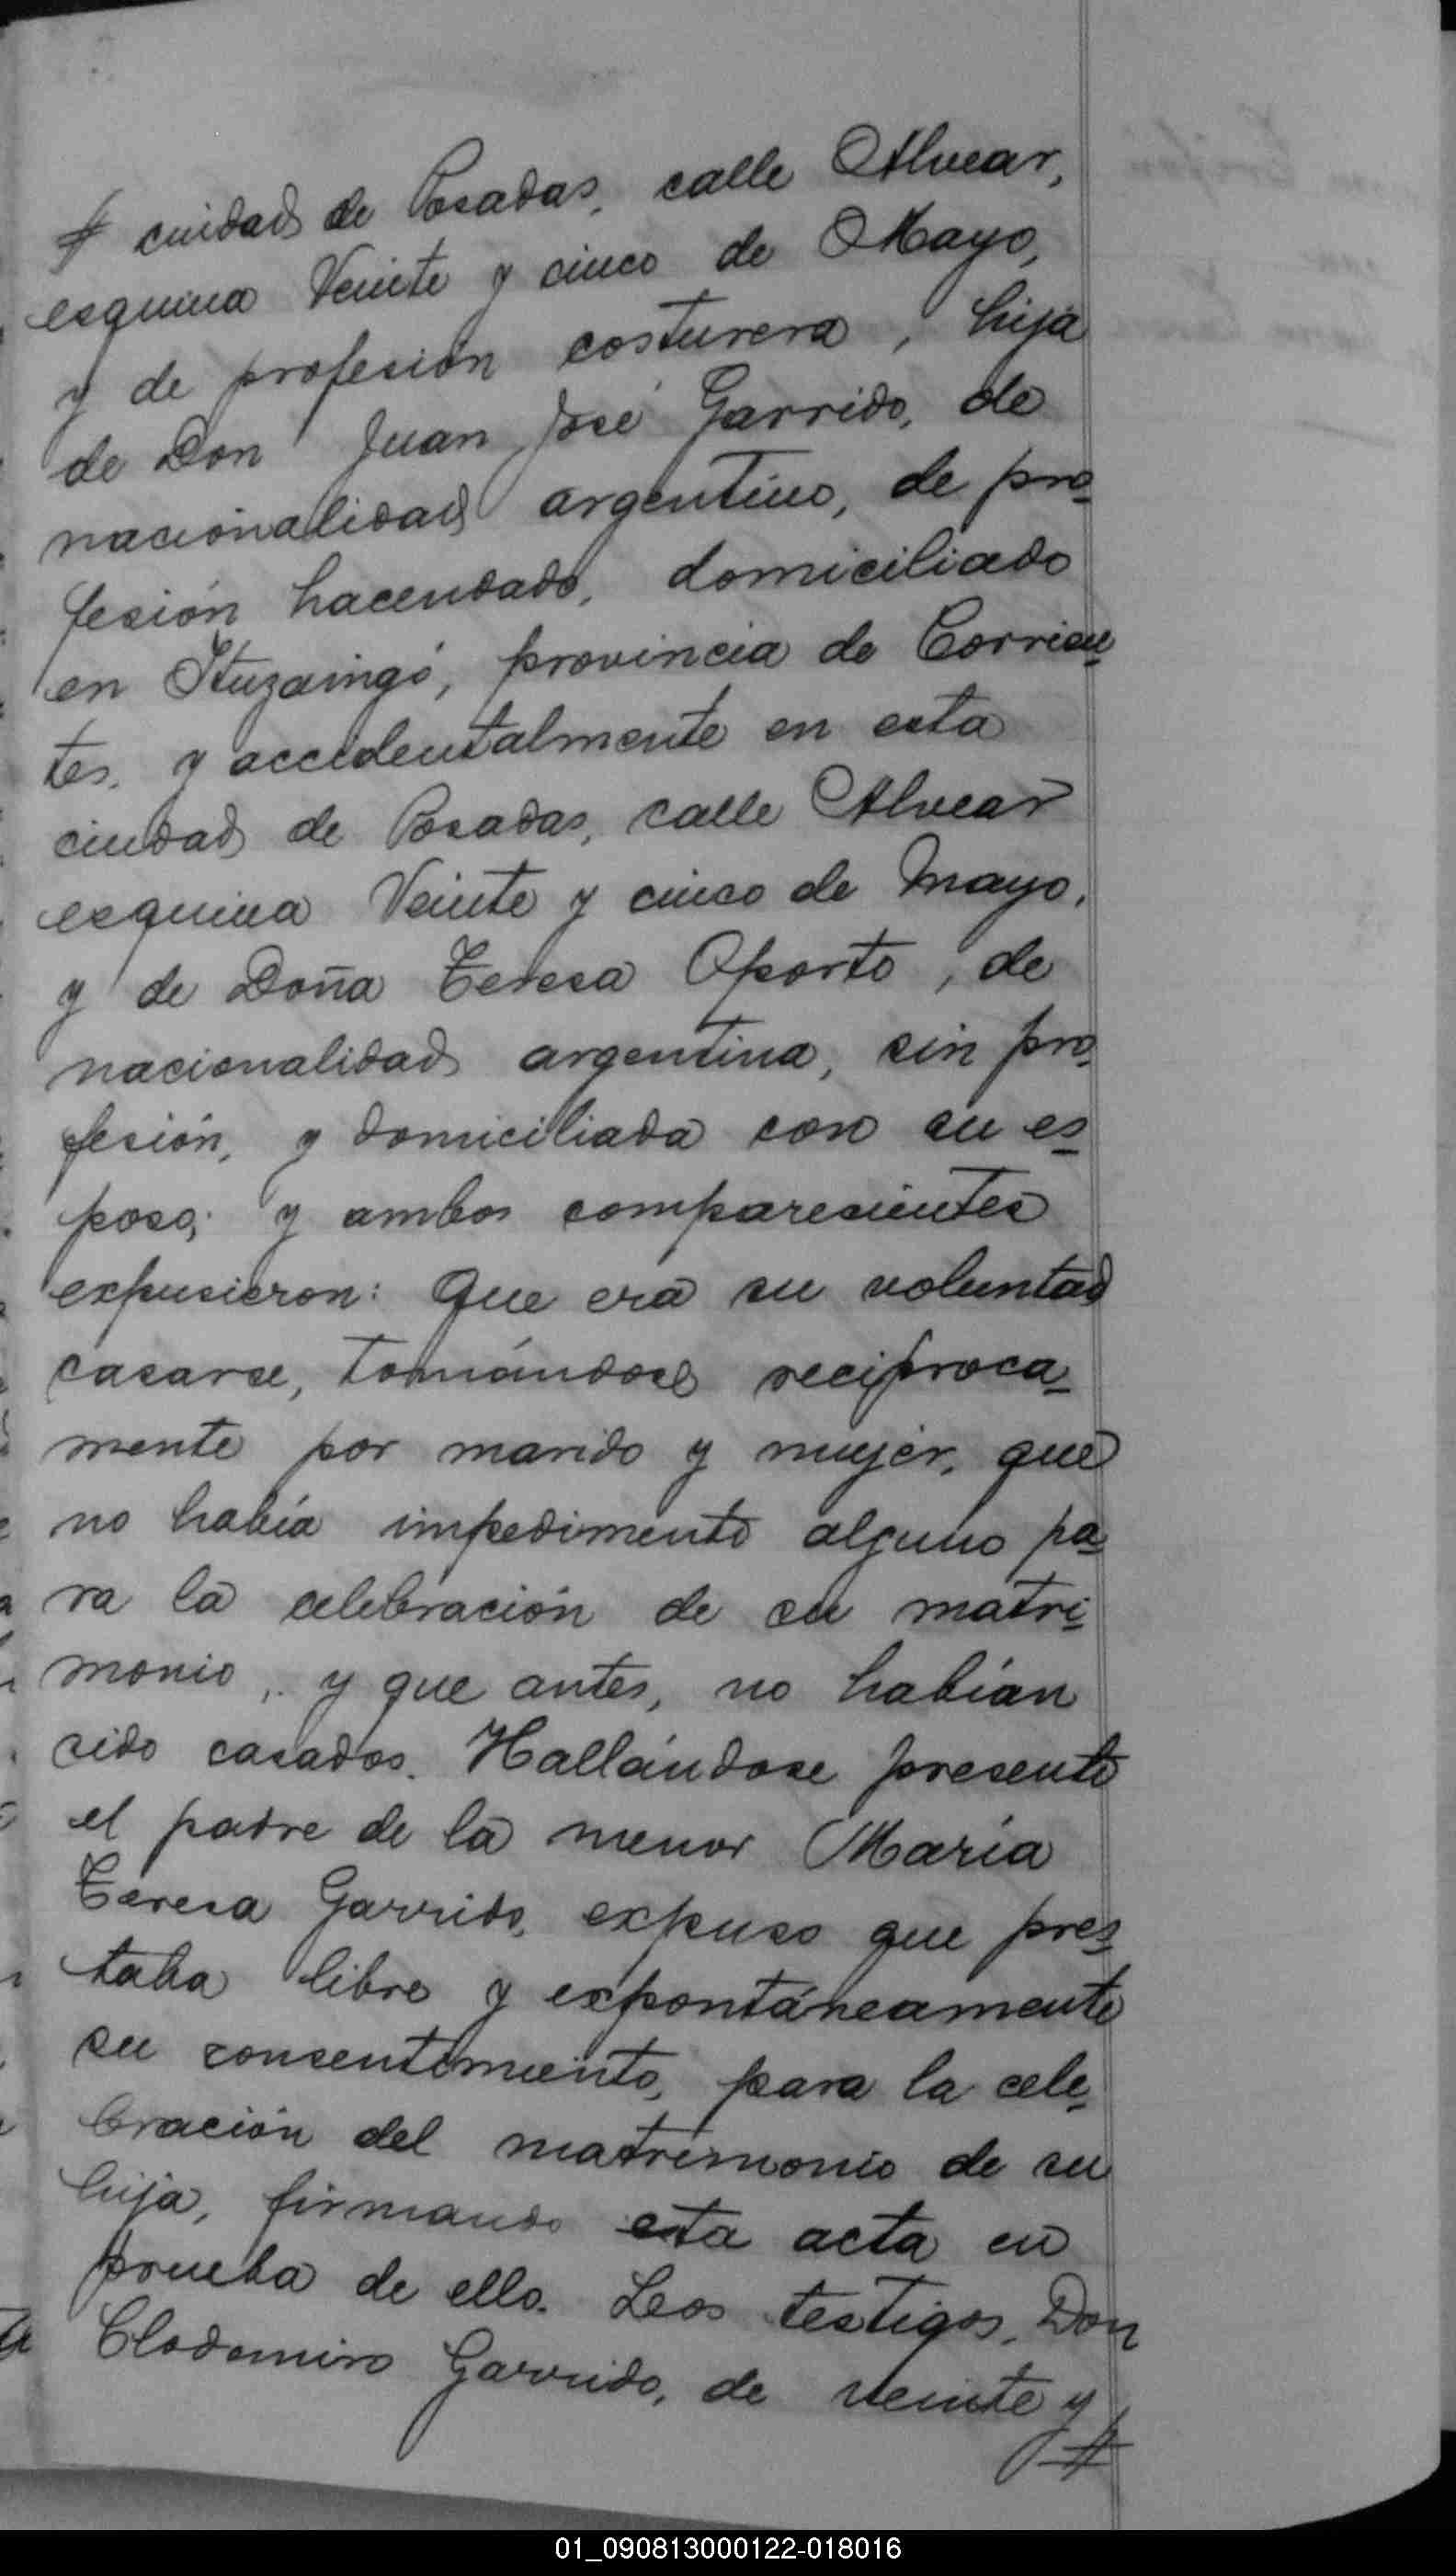 # ciudad de Posadas, calle Alvear,
esquina Veinte y cinco de Mayo,
y de profesión costurera, hija
de Don Juan José Garrido, de
nacionalidad argentino, de pro-
fesión hacendado, domiciliado
en Ituzaingó, provincia de Corrien-
tes, y accidentalmente en esta
ciudad de Posadas, calle Alvear
esquina Veinte y cinco de Mayo,
y de Doña Teresa Oporto, de
nacionalidad argentina, sin pro-
fesión, y domiciliada con su es-
poso; y ambos comparesientes
expusieron: Que era su voluntad
casarse, tomándose reciproca-
mente por marido y mujer, que
no había impedimento alguno pa-
ra la celebración de su matri-
monio, y que antes, no habían
sido casados. Hallándose presente
el padre de la menor María
Teresa Garrido, expuso que pres-
taba libre y expontáneamente
su consentimiento, para la cele-
bración del matrimonio de su
hija, firmando esta acta en
prueba de ello. Leos testigos, Don
Clodomiro Garrido, de veinte y
#
01_090813000122-018016